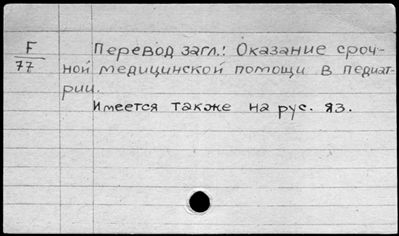 F Перевод загл.: Оказание сроч-
77 ной медицинской помощи в педиат-
рии.
Имеется также на рус. яз.